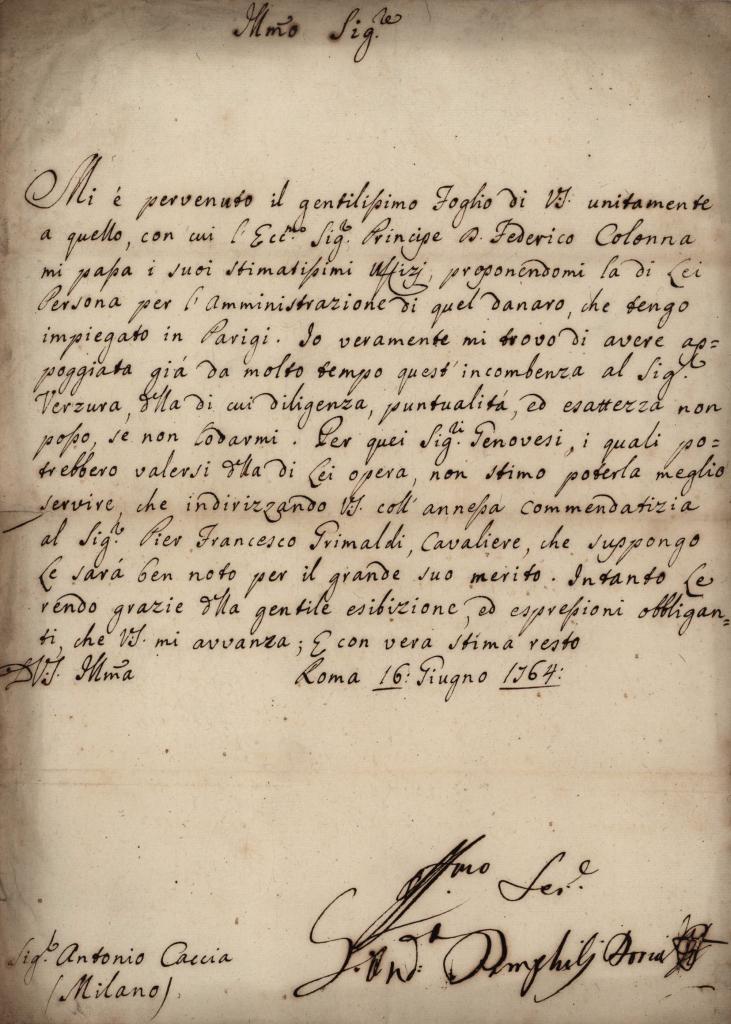 Illmo Sig.re
Mi è pervenuto il gentilissimo Foglio di VS. unitamente
a quello, con cui l'Ecc.mo Sig.r Principe D. Federico Colonna
mi passa i suoi stimatissimi Uffizj, proponendomi la di Lei
Persona per l'Amministrazione di quel danaro, che tengo
impiegato in Parigi. Io veramente mi trovo di avere ap=
poggiata giá da molto tempo quest'incombenza al Sig.r
Verzura, dlla di cui diligenza, puntualitá, ed esattezza non
posso, se non lodarmi. Per quei Sig.ri Genovesi, i quali po=
trebbero valersi dlla di Lei opera, non stimo poterla meglio
servire, che indirizzando VS. coll'annessa commendatizia
al Sig.r Pier Francesco Grimaldi, Cavaliere, che suppongo
Le sará ben noto per il grande suo merito. Intanto Le
rendo grazie dlla gentile esibizione, ed espressioni obbligan=
ti, che VS. mi avvanza; E con vera stima resto
D VS. Illma Roma 16: Giugno 1764:
Aff.mo Ser.e
Sig.r Antonio Caccia
(Milano)
G. And.a Pamphilj Doria